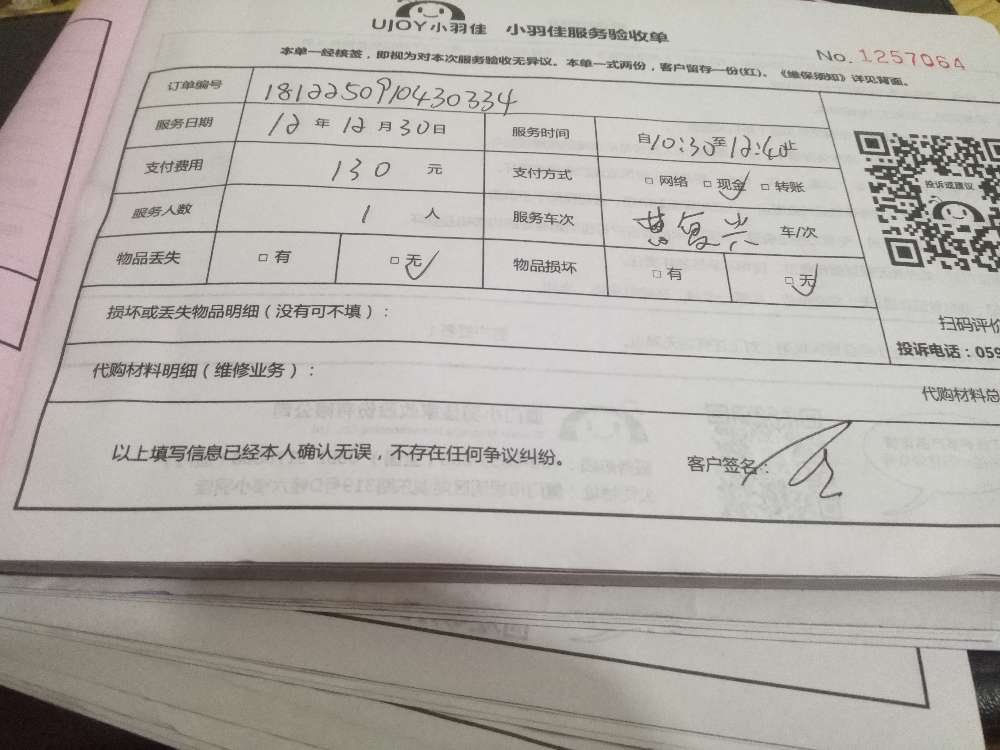 UJOY小羽佳 小羽佳服务验收单
No. 1257064
本单一经核签，即视为对本次服务验收无异议。本单一式两份，客户留存一份(红)。《维保须知》详见背面。
订单编号 1812250910430334
服务日期 12 年 12 月 30 日 服务时间 自10:30至12:40止
支付费用 130 元 支付方式 □ 网络 □ 现金 □ 转账
投诉或建议
服务人数 1 人 服务车次 车/次
物品丢失 □ 有 □ 无 物品损坏 □ 有 □ 无
损坏或丢失物品明细（没有可不填）：
扫码评价
投诉电话：059
代购材料明细（维修业务）：
代购材料总
以上填写信息已经本人确认无误，不存在任何争议纠纷。 客户签名：